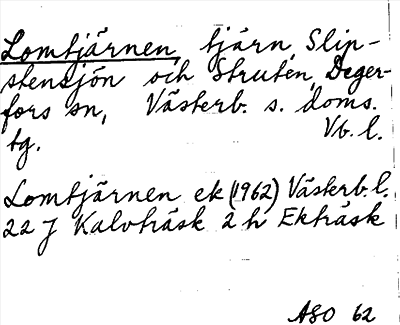 Lomtjärnen, tjärn, Slip-
stensjön och Strutén, Deger-
fors sn, Västerb. s. doms.
tg. Vb. l.
Lomtjärnen ek (1962) Västerb. l.
22 J Kalvträsk 2 h Ekträsk
ASO 62